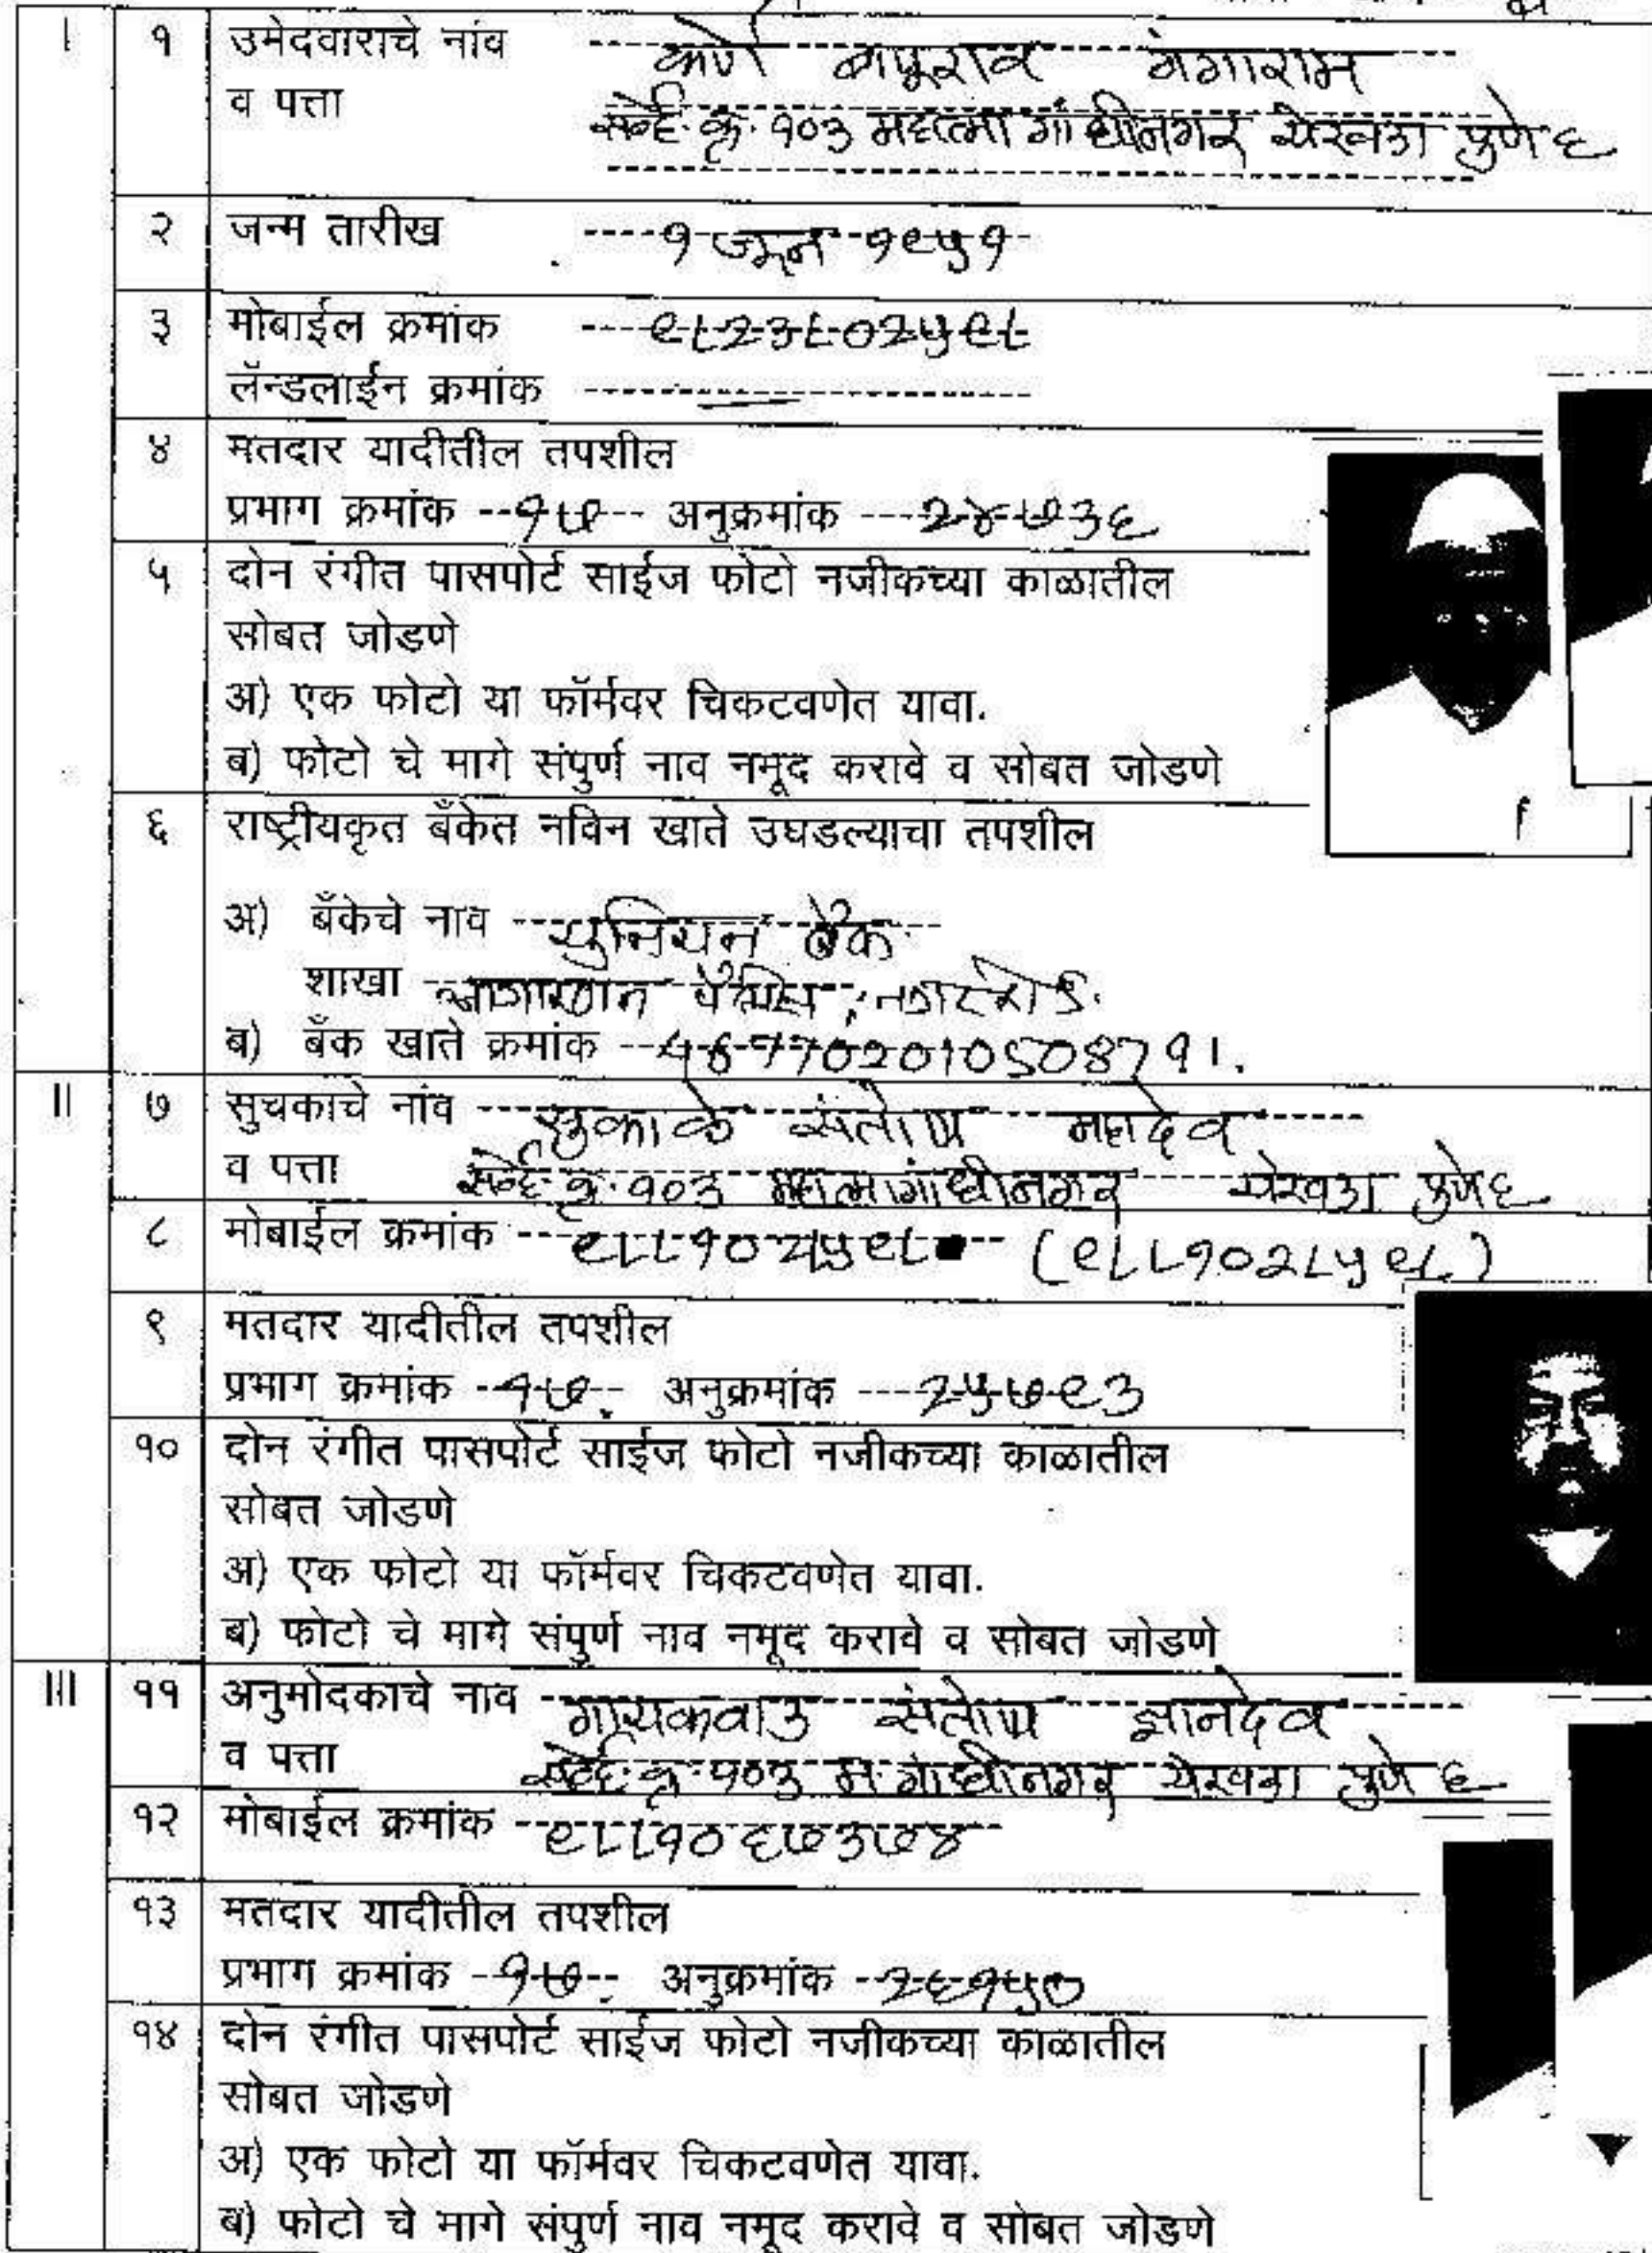 I १ उमेदवाराचे नांव कर्णे बापूराव गंगाराम
व पत्ता सर्व्हे. क्र. १०३ महात्मा गांधीनगर येरवडा पुणे ६
२ जन्म तारीख १ जून १९५१
३ मोबाईल क्रमांक ९८२३८०२५९८
लॅन्डलाईन क्रमांक —
४ मतदार यादीतील तपशील
प्रभाग क्रमांक १७ अनुक्रमांक २४७३६
५ दोन रंगीत पासपोर्ट साईज फोटो नजीकच्या काळातील
सोबत जोडणे
अ) एक फोटो या फॉर्मवर चिकटवणेत यावा.
ब) फोटो चे मागे संपुर्ण नाव नमूद करावे व सोबत जोडणे
६ राष्ट्रीयकृत बँकेत नविन खाते उघडल्याचा तपशील
अ) बँकेचे नाव युनियन बँक
शाखा नगररोड.
ब) बँक खाते क्रमांक
II ७ सुचकाचे नांव सुकाळे संतोष महादेव
व पत्ता सर्व्हे. क्र. १०३ महात्मा गांधीनगर येरवडा पुणे ६
८ मोबाईल क्रमांक (९८८१०२८५९८)
९ मतदार यादीतील तपशील
प्रभाग क्रमांक १७. अनुक्रमांक २५७९३
१० दोन रंगीत पासपोर्ट साईज फोटो नजीकच्या काळातील
सोबत जोडणे
अ) एक फोटो या फॉर्मवर चिकटवणेत यावा.
ब) फोटो चे मागे संपुर्ण नाव नमूद करावे व सोबत जोडणे
III ११ अनुमोदकाचे नाव गायकवाड संतोष ज्ञानदेव
व पत्ता सर्व्हे. क्र. १०३ म. गांधीनगर येरवडा पुणे ६
१२ मोबाईल क्रमांक ९८८१०६७३७४
१३ मतदार यादीतील तपशील
प्रभाग क्रमांक १७. अनुक्रमांक २६१५०
१४ दोन रंगीत पासपोर्ट साईज फोटो नजीकच्या काळातील
सोबत जोडणे
अ) एक फोटो या फॉर्मवर चिकटवणेत यावा.
ब) फोटो चे मागे संपुर्ण नाव नमूद करावे व सोबत जोडणे